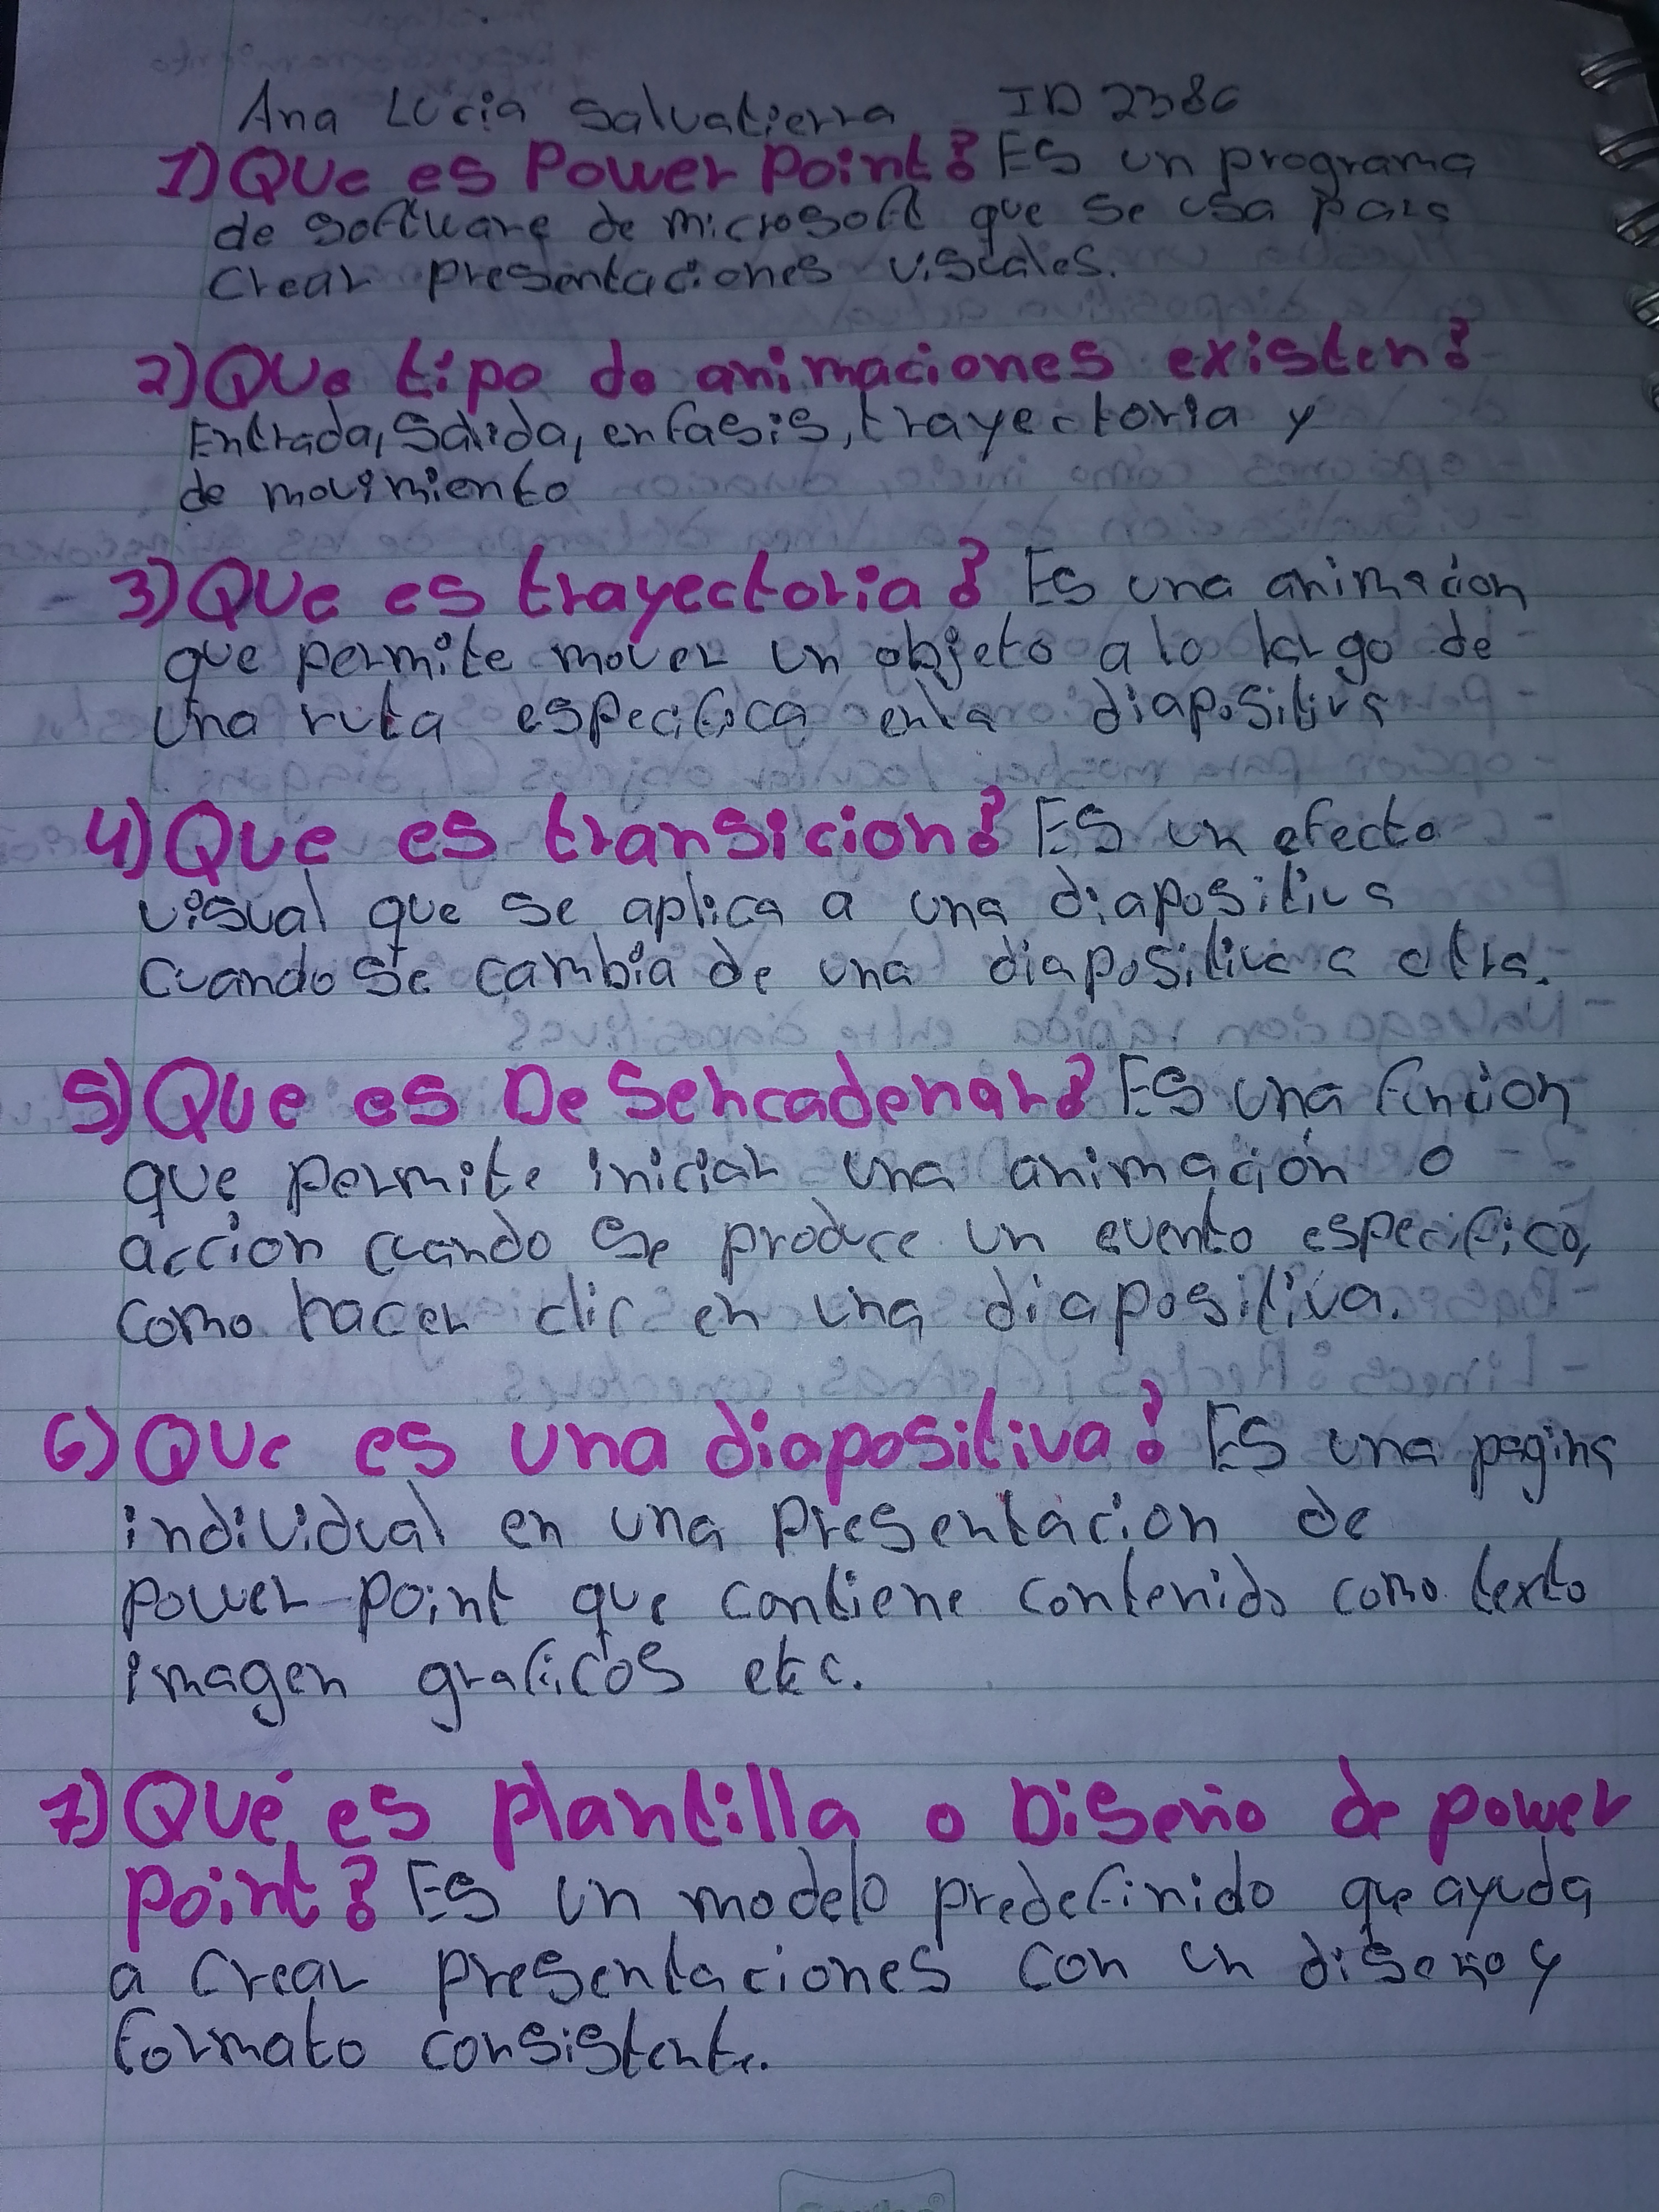 Ana Lucia Salvatierra ID 2386
1) Que es Power Point? Es un programa
de software de microsoft que se usa para
Crear presentaciones visuales.
2) Que tipo de animaciones existen?
Entrada, Salida, enfasis, trayectoria y
de movimiento
3) Que es trayectoria? Es una animación
que permite mover un objeto a lo largo de
una ruta especifica en la diapositiva
4) Que es transicion? Es un efecto
visual que se aplica a una diapositiva
cuando se cambia de una diapositiva a otra.
5) Que es Desencadenar? Es una funcion
que permite iniciar una animación o
acción cuando se produce un evento especifico,
como hacer clic en una diapositiva.
6) Que es una diapositiva? Es una pagina
individual en una presentacion de
power point que contiene contenido como texto
imagen graficos etc.
7) Qué es plantilla o Diseño de power
point? Es un modelo predefinido que ayuda
a crear presentaciones con un diseño y
formato consistente.